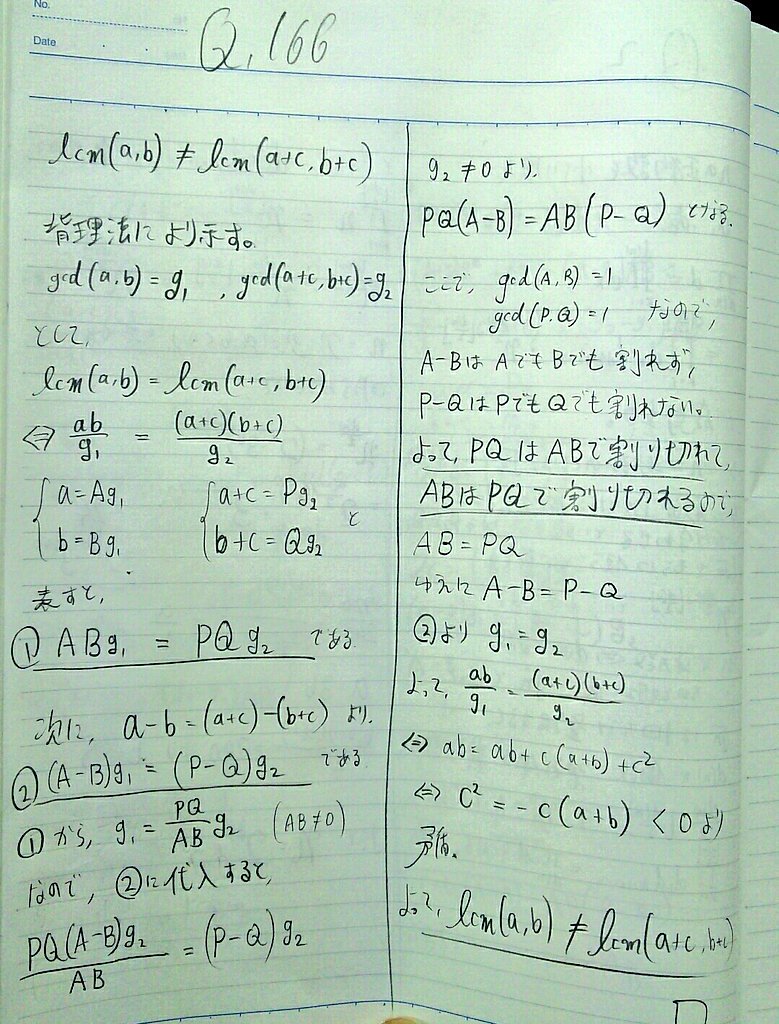 No.
Date
Q.166
lcm(a,b) ≠ lcm(a+c, b+c)
背理法により示す。
gcd(a,b) = g₁ , gcd(a+c, b+c) = g₂
として,
lcm(a,b) = lcm(a+c, b+c)
⇔ ab/g₁ = (a+c)(b+c)/g₂
{ a = Ag₁ { a+c = Pg₂
{ b = Bg₁ { b+c = Qg₂ と
表すと,
① ABg₁ = PQg₂ である
次に, a-b = (a+c)-(b+c) より.
② (A-B)g₁ = (P-Q)g₂ である
①から, g₁ = PQ/AB g₂ (AB≠0)
なので, ②に代入すると,
PQ(A-B)g₂/AB = (P-Q)g₂
g₂ ≠ 0 より.
PQ(A-B) = AB(P-Q) となる.
ここで, gcd(A,B) = 1
gcd(P,Q) = 1 なので,
A-BはAでもBでも割れず,
P-QはPでもQでも割れない。
よって, PQはABで割り切れて,
ABはPQで割り切れるので,
AB = PQ
ゆえに A-B = P-Q
②より g₁ = g₂
よって, ab/g₁ = (a+c)(b+c)/g₂
⇔ ab = ab + c(a+b) + c²
⇔ c² = -c(a+b) < 0 より
矛盾.
よって, lcm(a,b) ≠ lcm(a+c, b+c)